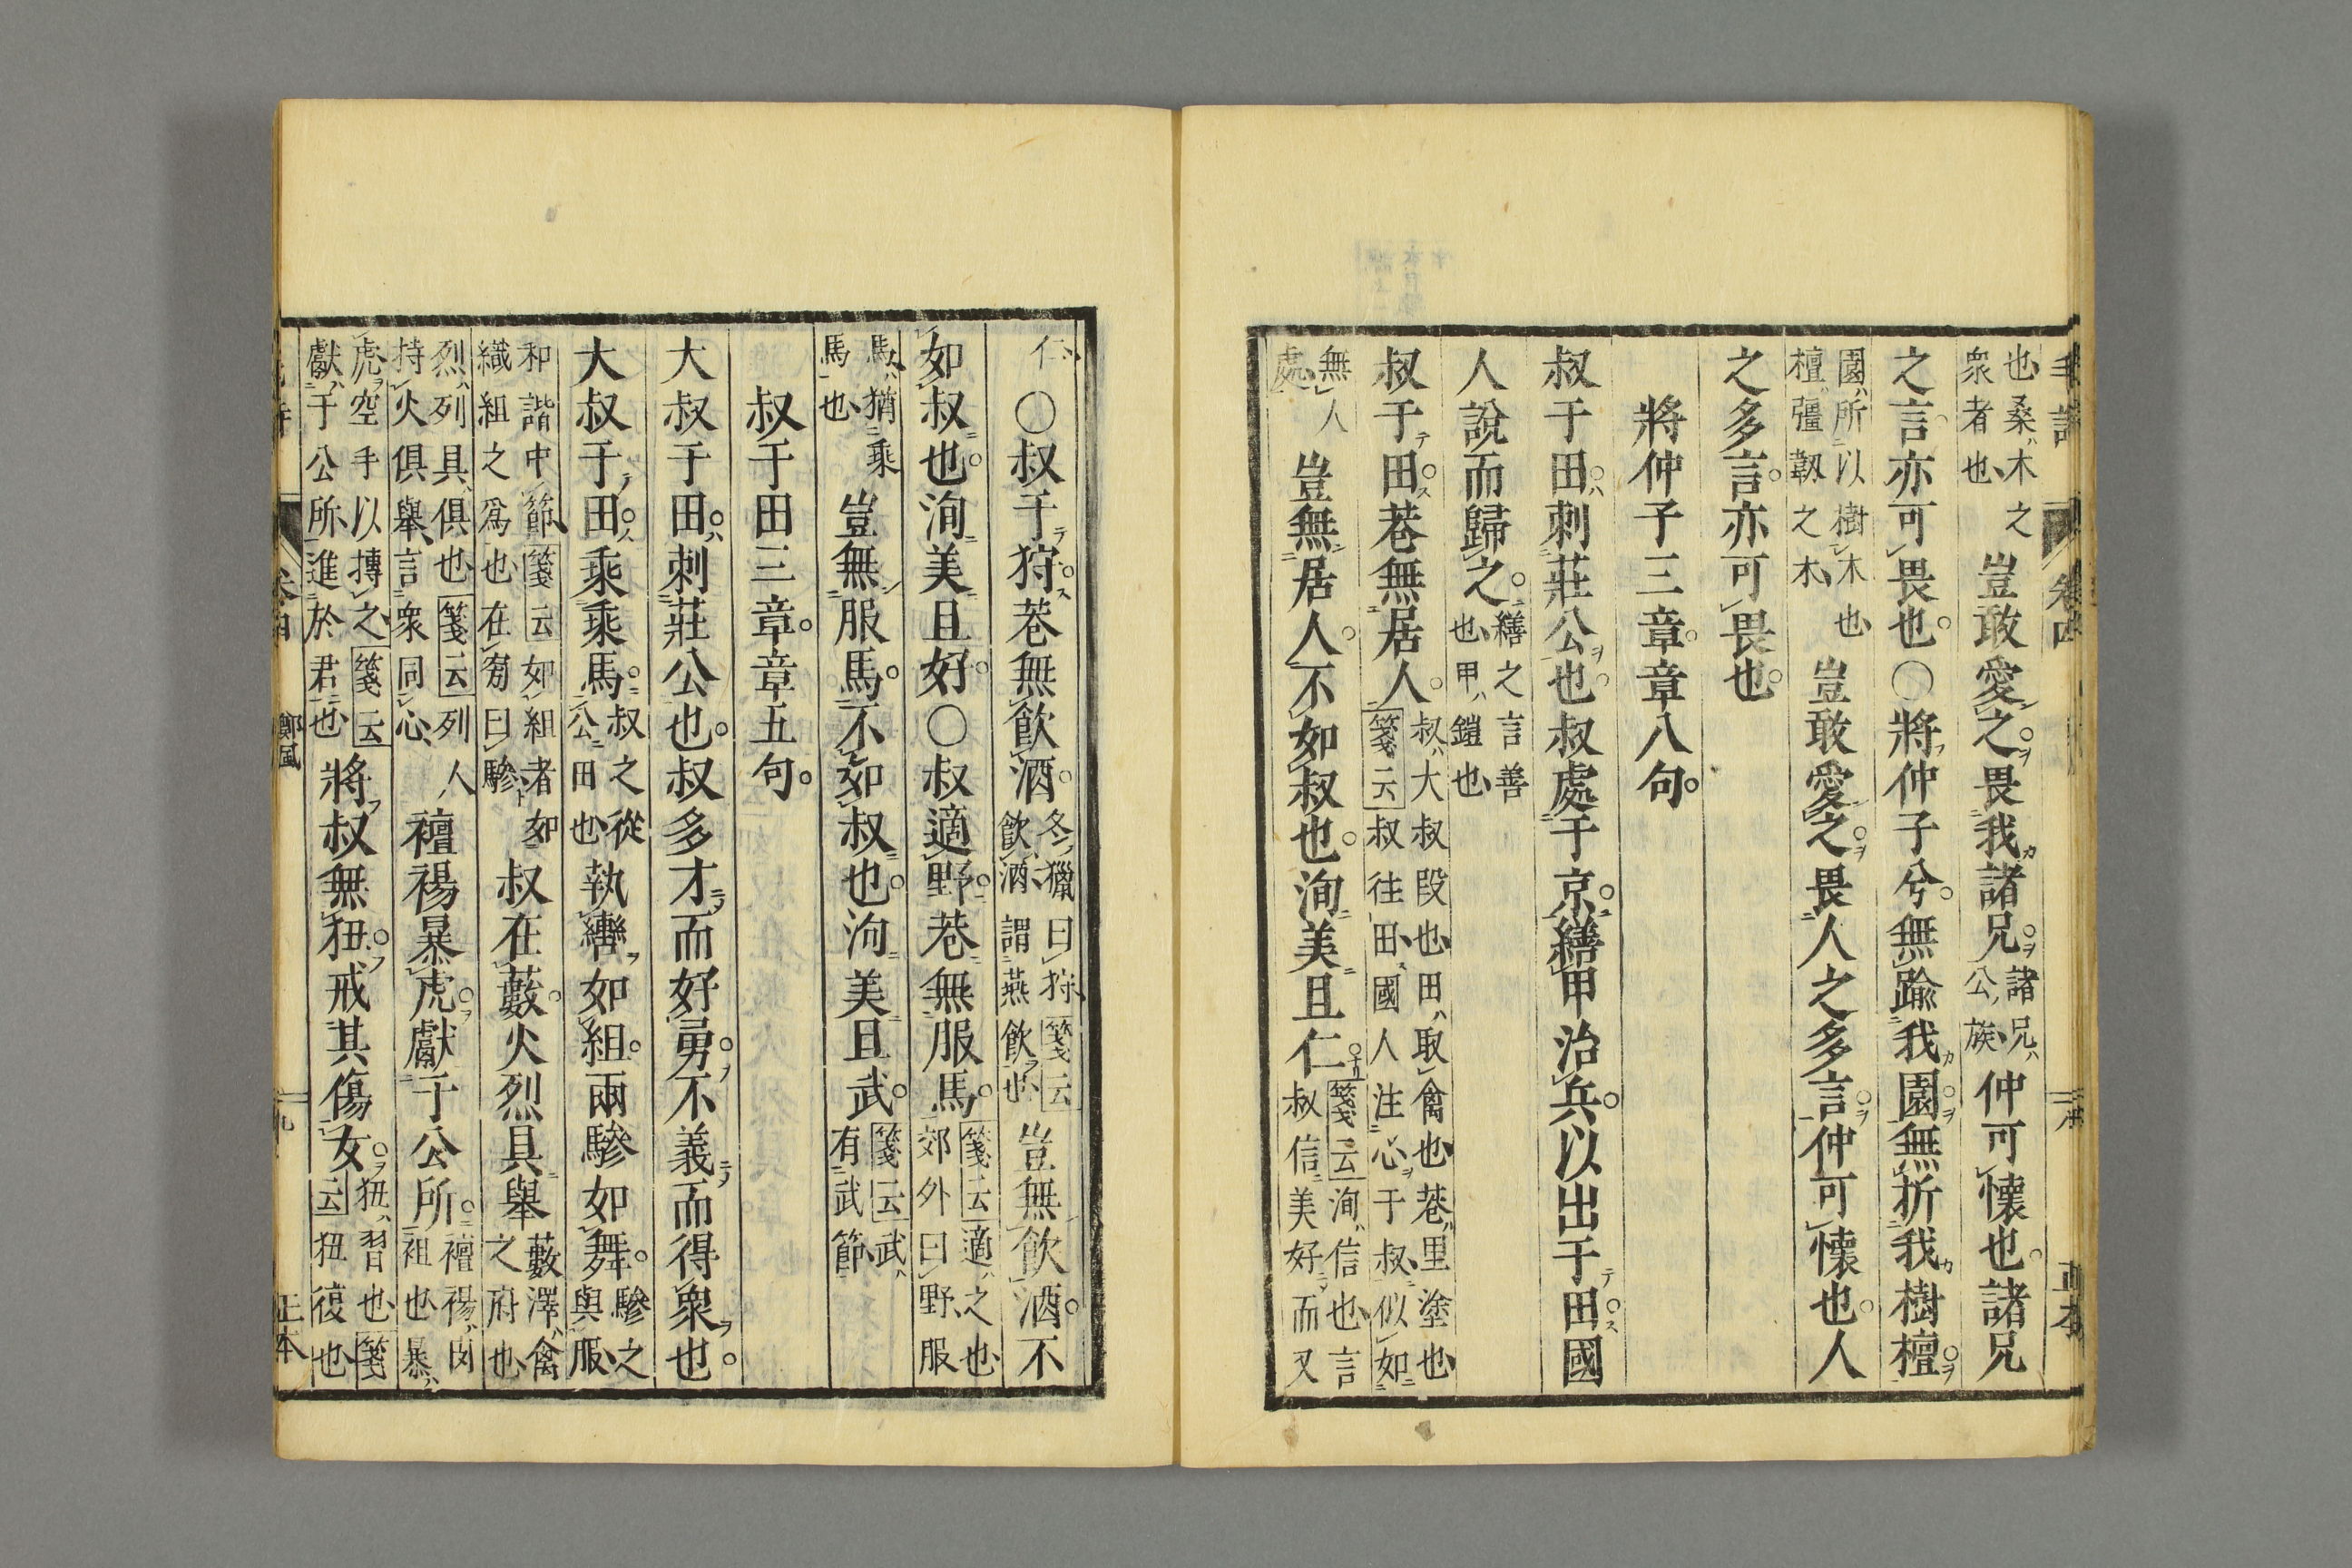 毛詩 卷四 正本
也桑木之衆者也豈敢愛之畏我諸兄諸兄公族仲可懷也諸兄
之言亦可畏也〇將仲子兮無踰我園無折我樹檀
園所以樹木也檀彊韌之木豈敢愛之畏人之多言仲可懷也人
之多言亦可畏也
將仲子三章章八句
叔于田刺莊公也叔處于京繕甲治兵以出于田國
人說而歸之繕之言善也甲鎧也
叔于田巷無居人叔大叔段也田取禽也巷里塗也箋云叔往田國人注心于叔似如
無人處豈無居人不如叔也洵美且仁箋云洵信也言叔信美好而又
仁〇叔于狩巷無飲酒冬獵曰狩箋云飲酒謂燕飲也豈無飲酒不
如叔也洵美且好〇叔適野巷無服馬箋云適之也郊外曰野服
馬猶乘馬也豈無服馬不如叔也洵美且武箋云武有武節
叔于田三章章五句
大叔于田刺莊公也叔多才而好勇不義而得衆也
大叔于田乘乘馬叔之從公田也執轡如組兩驂如舞驂之與服
和諧中節箋云如組者如織組之爲也在旁曰驂叔在藪火烈具舉藪澤禽之府也
烈列具俱也箋云列人持火俱舉言衆同心襢裼暴虎獻于公所襢裼肉袒也暴
虎空手以搏之箋云獻于公所進於君也將叔無狃戒其傷女狃習也箋云狃復也
卷四 鄭風 九 正本